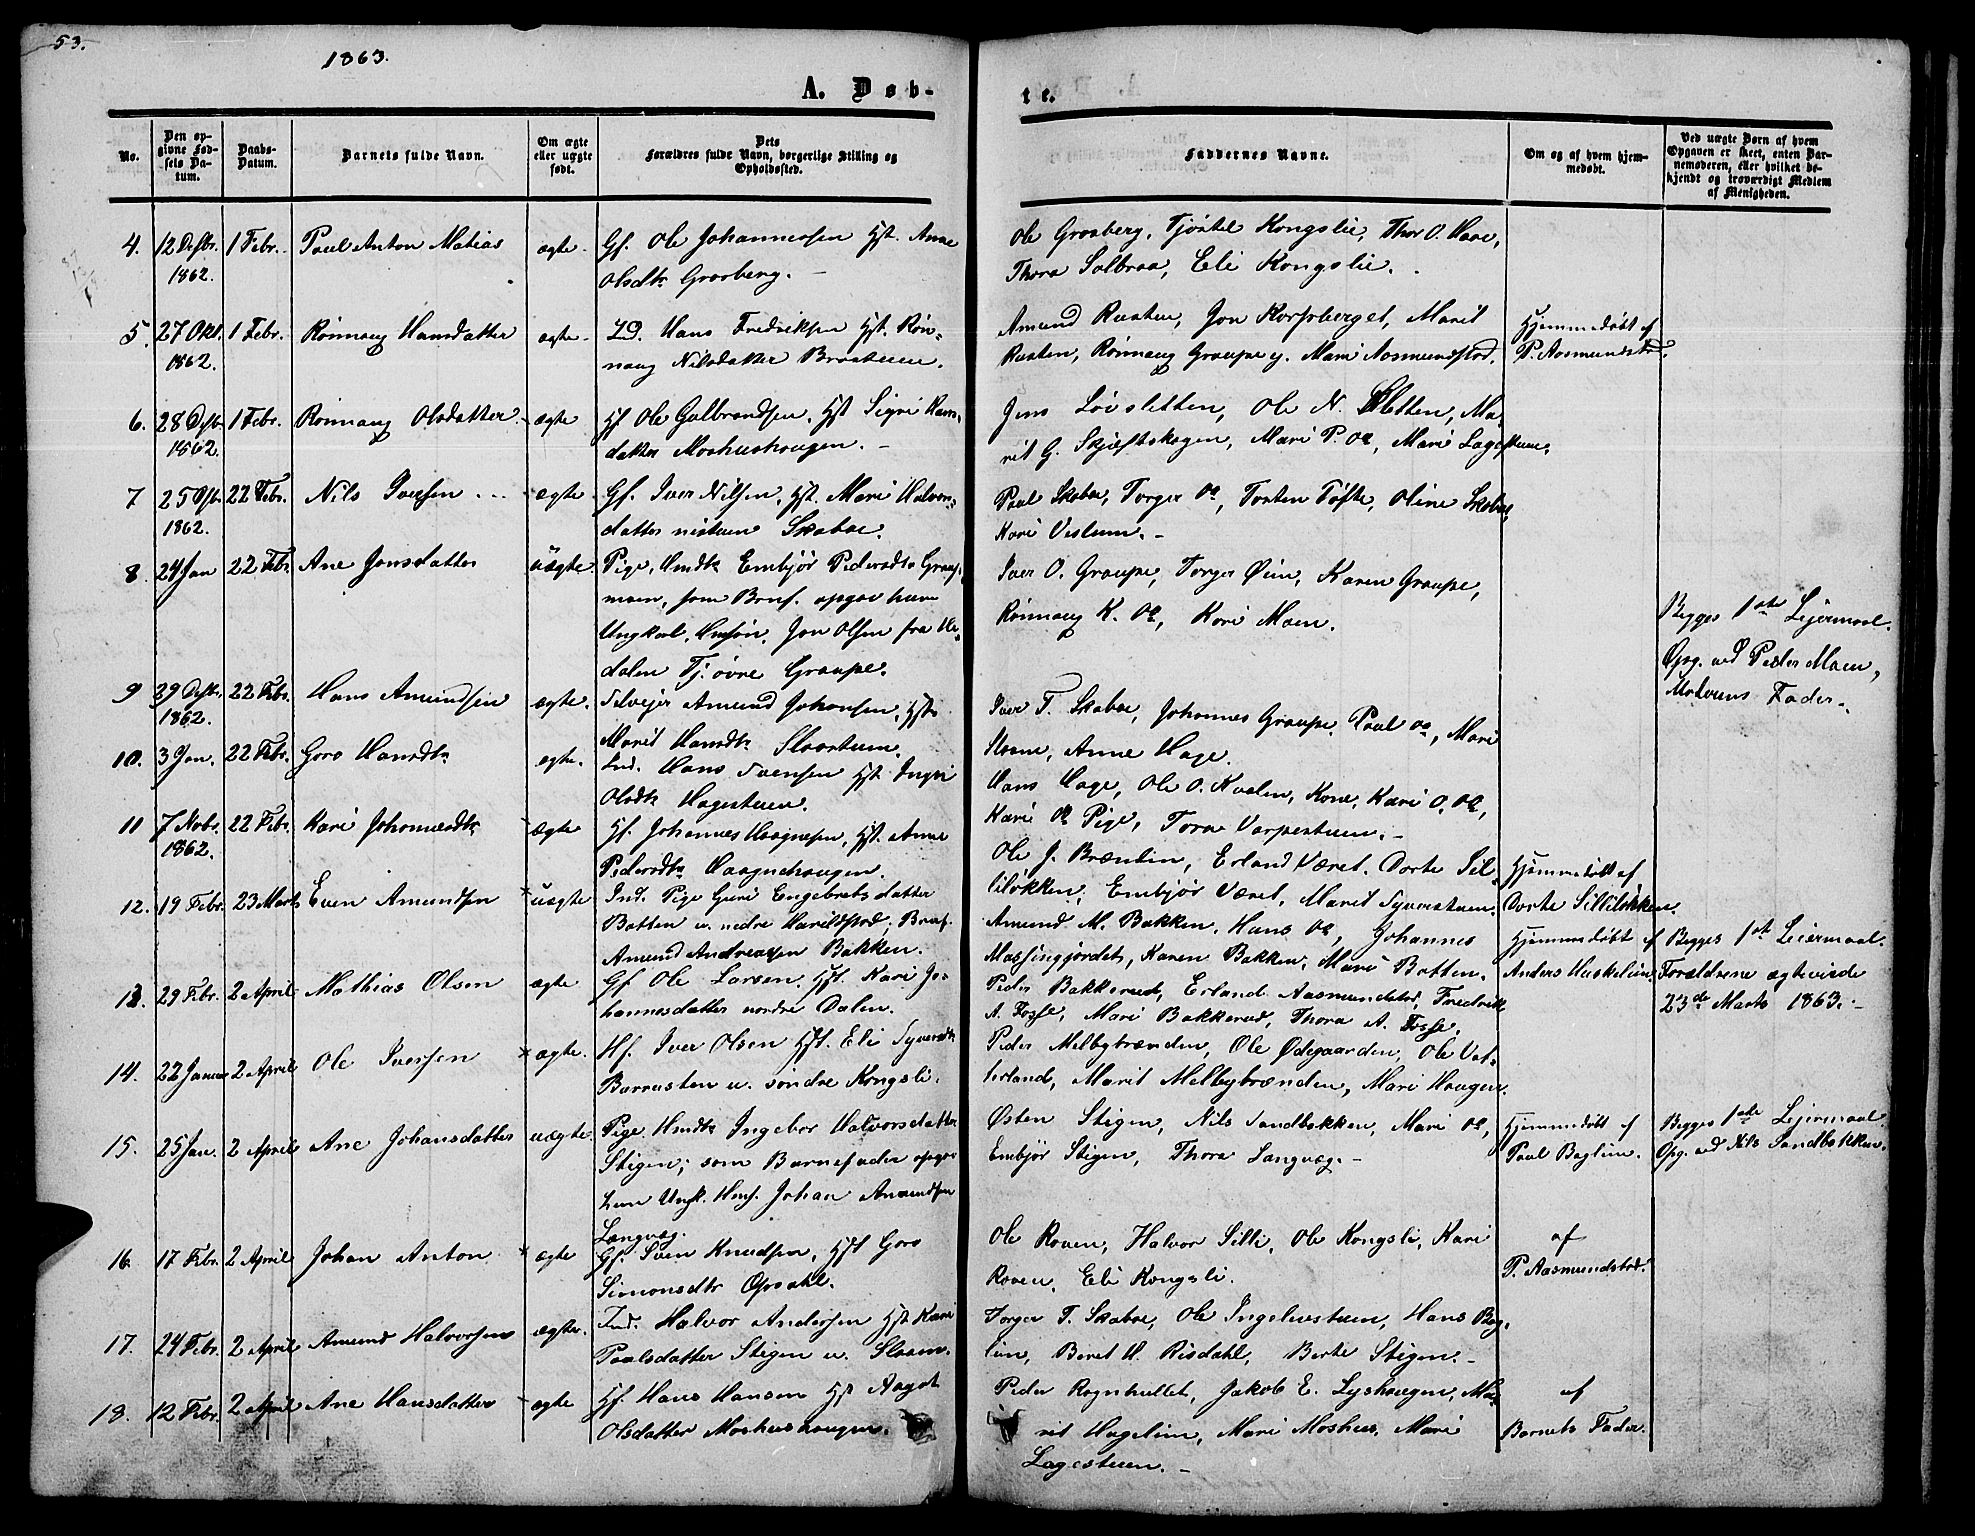 53.
1863.
A. Døb-
te.
No.
Den op-
givne Fød-
sels Da-
tum.
Daabs-
Datum.
Barnets fulde Navn.
Om ægte
eller uægte
født.
Dets
Forældres fulde Navn, borgerlige Stilling og
Opholdssted.
Faddernes Navne.
Om og af hvem hjem-
medøbt.
Ved uægte Børn af hvem
Opgaven er skeet, enten Bar-
nemoderen, eller hvilket be-
kjendt og troværdigt Medlem
af Menigheden.
4. 12 Desbr. 1 Febr. Paul Anton Matias ægte. Gf. Ole Johannessen Hst. Anne
1862. Olsdtr Grosberg.
Ole Grosberg, Tjøstel Kongslie, Thor O.
Thora Solbraa, Eli Kongslie.
5. 27 Okt. 1 Febr. Rønnaug Hansdatter ægte. Ind. Hans Fredriksen Hst. Røn-
1862. naug Nilsdatter Braastuen.
Amund Rusten, Jon Korpberget, Marit
Rusten, Rønnaug Graupe g. Mari Aasmundstad.
Hjemmedøbt af
P. Aasmundstad.
6. 28 Dsbr 1 Febr. Rønnaug Olsdatter ægte Hf Ole Gulbrandsen, Hst Sigri Hans-
1862. datter Moshushougen.
Jens Løvsletten, Ole N. Sletten, Ma-
rit G. Skjeftskogen, Mari P. oa, Mari Lagestuen.
7 25 Dsbr 22 Febr. Nils Iversen ægte Gf. Iver Nilsen, Hst. Mari Halvors-
1862. datter nistuen Skabae.
Paul Skabae, Torger oa, Torsten Tofte, Oline Skabae,
Kari Vistuen.
8. 24 Jan 22 Febr. Ane Jonsdatter uægte. Pige, Hmdtr Embjør Pedersdtr Graup-
moen, som Brnf. opgav hun
Ungkarl, Hmsøn, Jon Olsen fra He-
dalen Tj. øvre Graupe.
Iver O. Graupe, Torger Øien, Karen Graupe,
Rønnaug K. oa, Kari Moen.
Begges 1ste Lejermaal.
Opg. ved Peder Moen,
Moderens Fader.
9 29 Desbr. 22 Febr. Hans Amundsen ægte. Selvejer Amund Johansen, Hst.
1862. Marit Hansdtr Slaastuen.
Iver T. Skabae, Johannes Graupe, Paul oa, Mari
Sloen, Anne Hage.
10. 3 Jan. 22 Febr. Goro Hansdtr ægte. Ind. Hans Svensen Hst. Ingri
Olsdtr Hagestuen.
Hans Hage, Ole O. Kvalen, Kone, Kari O. oa,
Kari oa Pige, Tora Varpestuen.
11 7 Novbr. 22 Febr. Kari Johannesdtr ægte Hf. Johannes Haagensen, Hst. Anne
1862. Pedersdtr Haagenhougen.
Ole J. Brænlin, Erland Været, Dorte Sil-
liløkken, Embjør Været, Marit Syverstuen.
Hjemmedøbt af
Dorte Silliløkken.
12. 19 Febr. 23 Marts Even Amundsen uægte Ind. Pige Guri Engebretsdatter
Botten u. nedre Harildstad; Brnf.
Amund Andreassen Bakken.
Amund M. Bakken, Hans oa, Johannes
Massingjordet, Karen Bakken, Mari Botten.
Hjemmedøbt af
Anders Huskelien.
Begges 1ste Leiermaal.
Forældrene ægteviede
23de Marts 1863.
13. 29 Febr. 2 April Mathias Olsen ægte Gf Ole Larsen, Hst. Kari Jo-
hannesdatter nordre Dalen.
Peder Bakkerud, Erland Aasmundstad, Fredrik
A. Fosse, Mari Bakkerud, Thora A. Fosse.
14. 22 Januar 2 April Ole Iversen ægte. Hf. Iver Olsen Hst. Eli Syversdtr
Barrusten u. søndre Kongsli.
Peder Melbybrænden, Ole Ødegaarden, Ole Vet-
lerland, Marit Melbybrænden, Mari Hougen.
15. 25 Jan. 2 April Ane Johansdatter uægte. Pige Hmdtr Ingebor Halvorsdatter
Stigen; som Barnefader opgav
hun Ungk. Hmf. Johan Amundsen
Langvæg.
Østen Stigen, Nils Sandbakken, Mari oa,
Embjør Stigen, Thora Langvæg.
Hjemmedøbt af
Paul Baglien.
Begges 1ste Lejermaal.
Opg. ved Nils Sandbakken.
16. 17 Febr. 2 April Johan Anton ægte Gf. Sven Knudsen, Hst Goro
Simonsdtr Opsahl.
Ole Roven, Halvor Silli, Ole Kongsli, Kari
Roven, Eli Kongsli.
af
P. Aasmundstad.
17. 24 Febr. 2 April Amund Halvorsen ægte. Ind. Halvor Andersen Hst Kari
Paalsdatter Stigen u. Sloen.
Torger T. Skabae, Ole Ingelivstuen, Hans Bag-
lien, Beret H. Risdahl, Berte Stigen.
18. 12 Febr. 2 April Ane Hansdatter ægte Hf. Hans Hansen Hst Aagot
Olsdatter Moshushougen.
Peder Rognhullet, Jakob E. Lyshougen, Ma-
rit Hagelien, Mari Moshus, Mari
Lagestuen.
af
Barnets Fader.